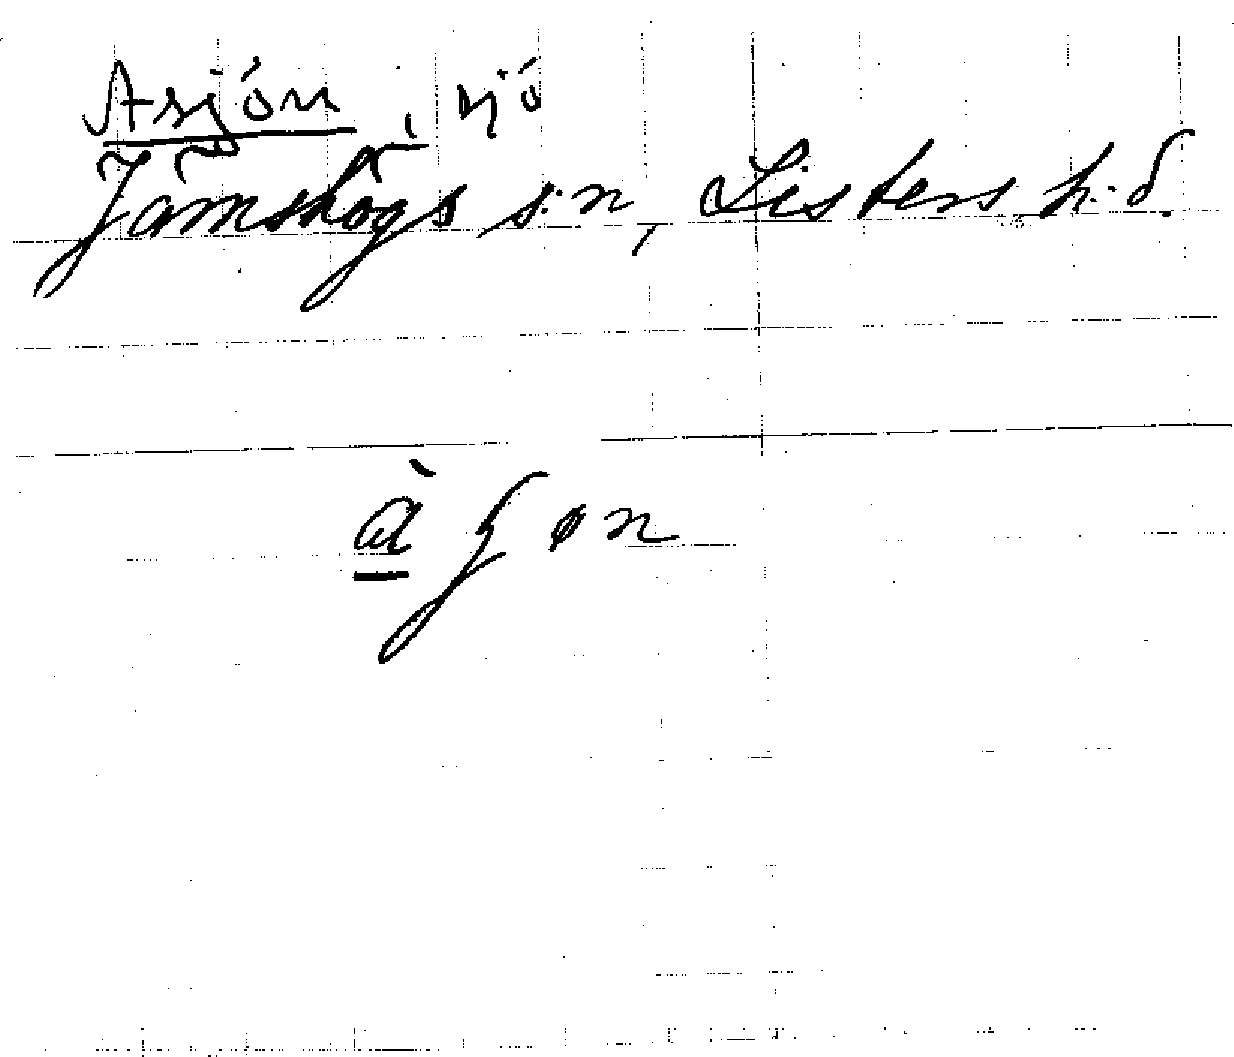 Asjön, sjö
Jämshögs s:n, Listers h:d.
à ʃøn